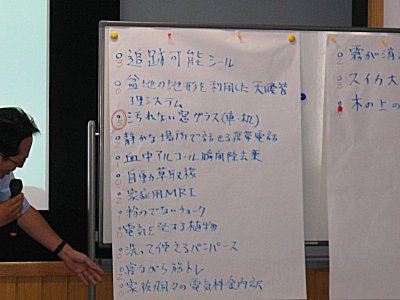 追跡可能シール
盆地の地形を利用した天曜管
理システム
汚れない窓ガラス(車、机)
静かな場所で話せる携帯電話
血中アルコール瞬間除去薬
自動草取機
家庭用MRI
粉のでないチョーク
電気を発する植物
洗って使えるパンパース
寝ながら筋トレ
家族個々の電気料金内訳
霧が消
スイカ大
木の上の